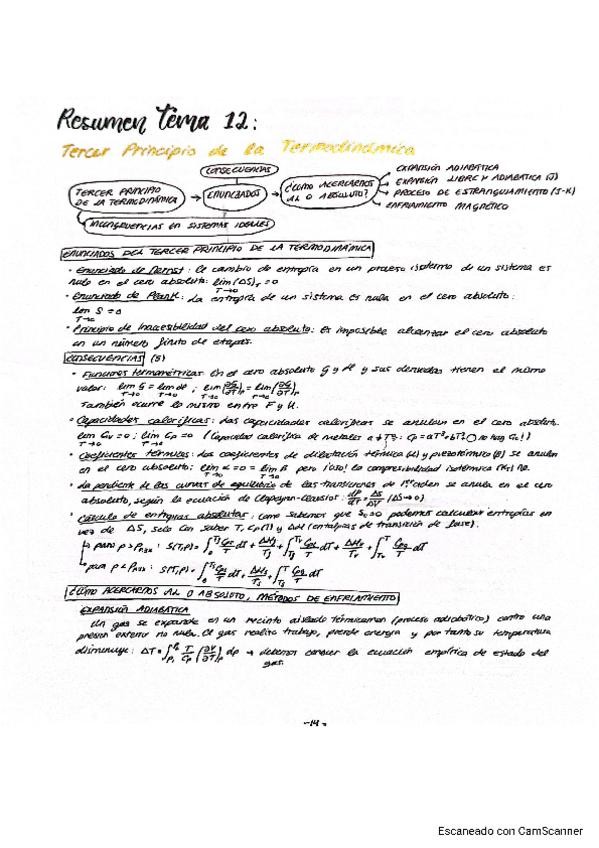 Resumen tema 12:
Tercer Principio de la Termodinámica
CONSECUENCIAS
TERCER PRINCIPIO DE LA TERMODINÁMICA → ENUNCIADOS → ¿COMO ACERCARNOS AL 0 ABSOLUTO?
EXPANSIÓN ADIABÁTICA
EXPANSIÓN LIBRE Y ADIABÁTICA (J)
PROCESO DE ESTRANGULAMIENTO (J-K)
ENFRIAMIENTO MAGNÉTICO
INCONGRUENCIAS EN SISTEMAS IDEALES
ENUNCIADOS DEL TERCER PRINCIPIO DE LA TERMODINÁMICA
· Enunciado de Nernst: el cambio de entropía en un proceso isotermo de un sistema es
nulo en el cero absoluto: lim (ΔS)T = 0
T→0
· Enunciado de Plank: La entropía de un sistema es nula en el cero absoluto:
lim S = 0
T→0
· Principio de inaccesibilidad del cero absoluto: es imposible alcanzar el cero absoluto
en un número finito de etapas.
CONSECUENCIAS (5)
· Funciones termométricas: En el cero absoluto G y H y sus derivadas tienen el mismo
valor: lim G = lim H ; lim (∂G/∂T)p = lim (∂H/∂T)p
T→0 T→0 T→0 T→0
También ocurre lo mismo entre F y U.
· Capacidades caloríficas: Las capacidades caloríficas se anulan en el cero absoluto.
lim Cv = 0 ; lim Cp = 0 (Capacidad calorífica de metales a
T→0 T→0
· Coeficientes térmicos: Los coeficientes de dilatación térmica (α) y piezotérmico (β) se anulan
en el cero absoluto; lim α = 0 = lim β pero ¡ojo! la compresibilidad isotérmica (KT) no.
T→0 T→0
· La pendiente de las curvas de equilibrio de las transiciones de 1er orden se anula en el cero
absoluto, según la ecuación de Clapeyron-Clausius: dp/dT = ΔS/ΔV (ΔS→0)
· Cálculo de entropías absolutas: como sabemos que S0=0 podemos calcular entropías en
vez de ΔS, solo con saber T, Cp(T) y ΔH (entalpías de transición de fase).
para p > : S(T,P) = ∫ dT + + ∫ dT + + ∫ dT
para p < : S(T,P) = ∫ dT + + ∫ dT
¿CÓMO ACERCARNOS AL 0 ABSOLUTO, MÉTODOS DE ENFRIAMIENTO
EXPANSIÓN ADIABÁTICA
Un gas se expande en un recinto aislado térmicamen (proceso adiabático) contra una
presión exterior no nula. El gas realiza trabajo, pierde energía y por tanto su temperatura
disminuye: ΔT = ∫ T/Cp (∂V/∂T)p dp → debemos conocer la ecuación empírica de estado del
gas.
-14-
Escaneado con CamScanner